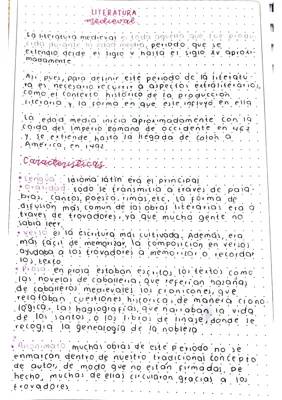 LITERATURA
medieval
La literatura medieval es toda aquella que fue produ-
cida durante la edad media, periodo que se
extendió desde el siglo V hasta el siglo XV aproxi-
madamente
Así pues, para definir este periodo de la literatu-
ra es necesario recurrir a aspectos extraliterarios,
como el contexto histórico de la producción
literaria y la forma en que este influyó en ella
La edad media inicia aproximadamente con la
caída del imperio Romano de occidente en
y se extiende hasta la llegada de Colón a
América, en 1492
Características
Lengua: idioma latín era el principal
Oralidad: todo se transmitía a través de pala-
bras, cantos, poesía, rimas, etc, la forma de
difusión más común de las obras literarias era a
través de trovadores, ya que mucha gente no
sabía leer
Verso: es la escritura más cultivada. Además, era
más fácil de memorizar, la composición en versos
ayudaba a los trovadores a memorizar o recordar
los texto
Prosa: en prosa estaban escritos los textos como
las novelas de caballería, que referían hazañas
de caballeros medievales; los cronicones, que
relataban cuestiones histórica, de manera crono-
lógica, las hagiografías, que narraban la vida
de los santos, o los libros de linaje, donde se
recogía la genealogía de la nobleza
Anonimato: muchas obras de este periodo no se
enmarcan dentro de nuestro tradicional concepto
de autor, de modo que no están firmadas, de
hecho, muchas de ellas circularon gracias a los
trovadores